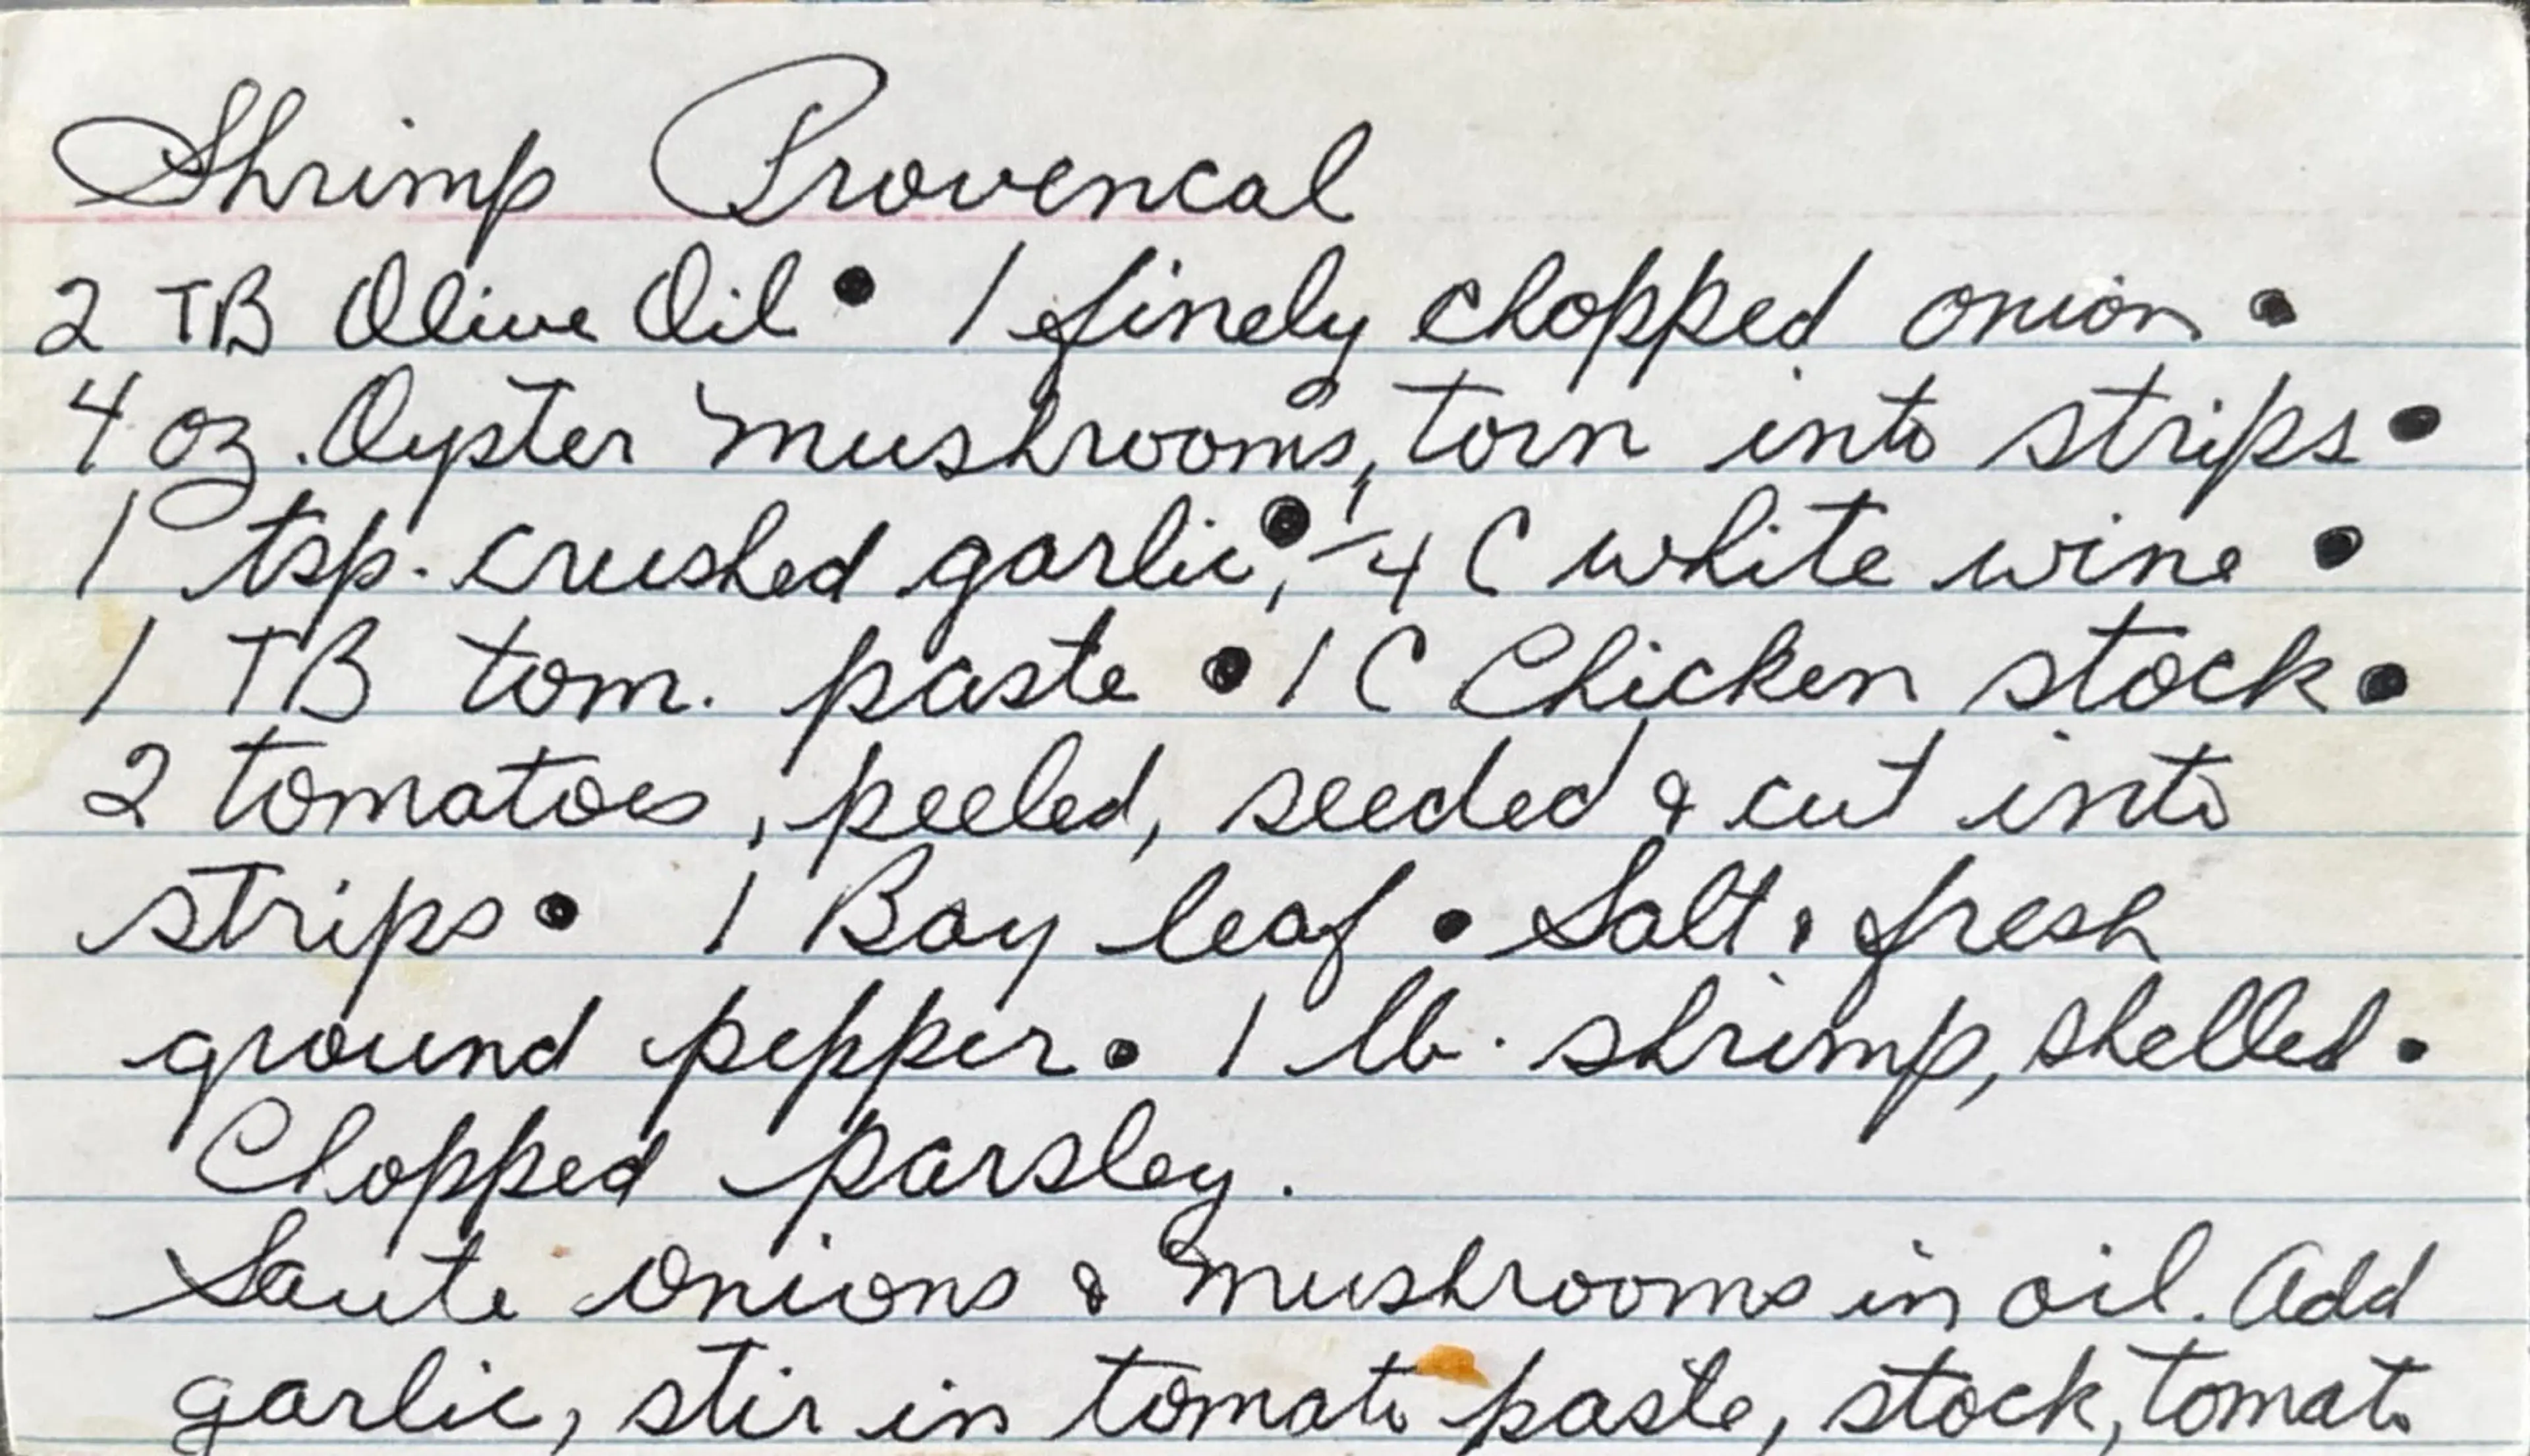 Shrimp Provencal
2 TB Olive Oil • 1 finely chopped onion •
4 oz. Oyster mushrooms, torn into strips •
1 tsp. crushed garlic •, 1/4 C white wine •
1 TB tom. paste • 1 C Chicken stock •
2 tomatoes, peeled, seeded & cut into
strips • 1 Bay leaf • Salt & fresh
ground pepper • 1 lb. shrimp, shelled •
Chopped parsley.
Saute onions & mushrooms in oil. Add
garlic, stir in tomato paste, stock, tomato